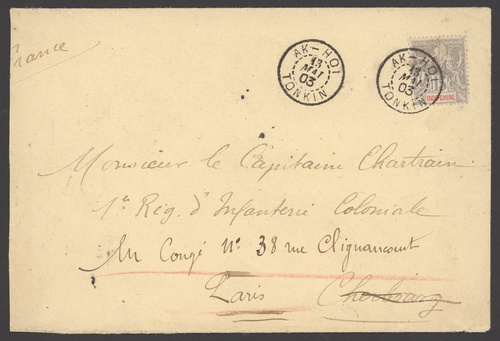 France
AK-HOI
13
MAI
03
TONKIN
AK-HOI
13
MAI
03
TONKIN
INDO-CHINE
Monsieur le Capitaine Chartrain
1er Rég. d'Infanterie Coloniale
En Congé N° 38 rue Clignancourt
Paris Cherbourg